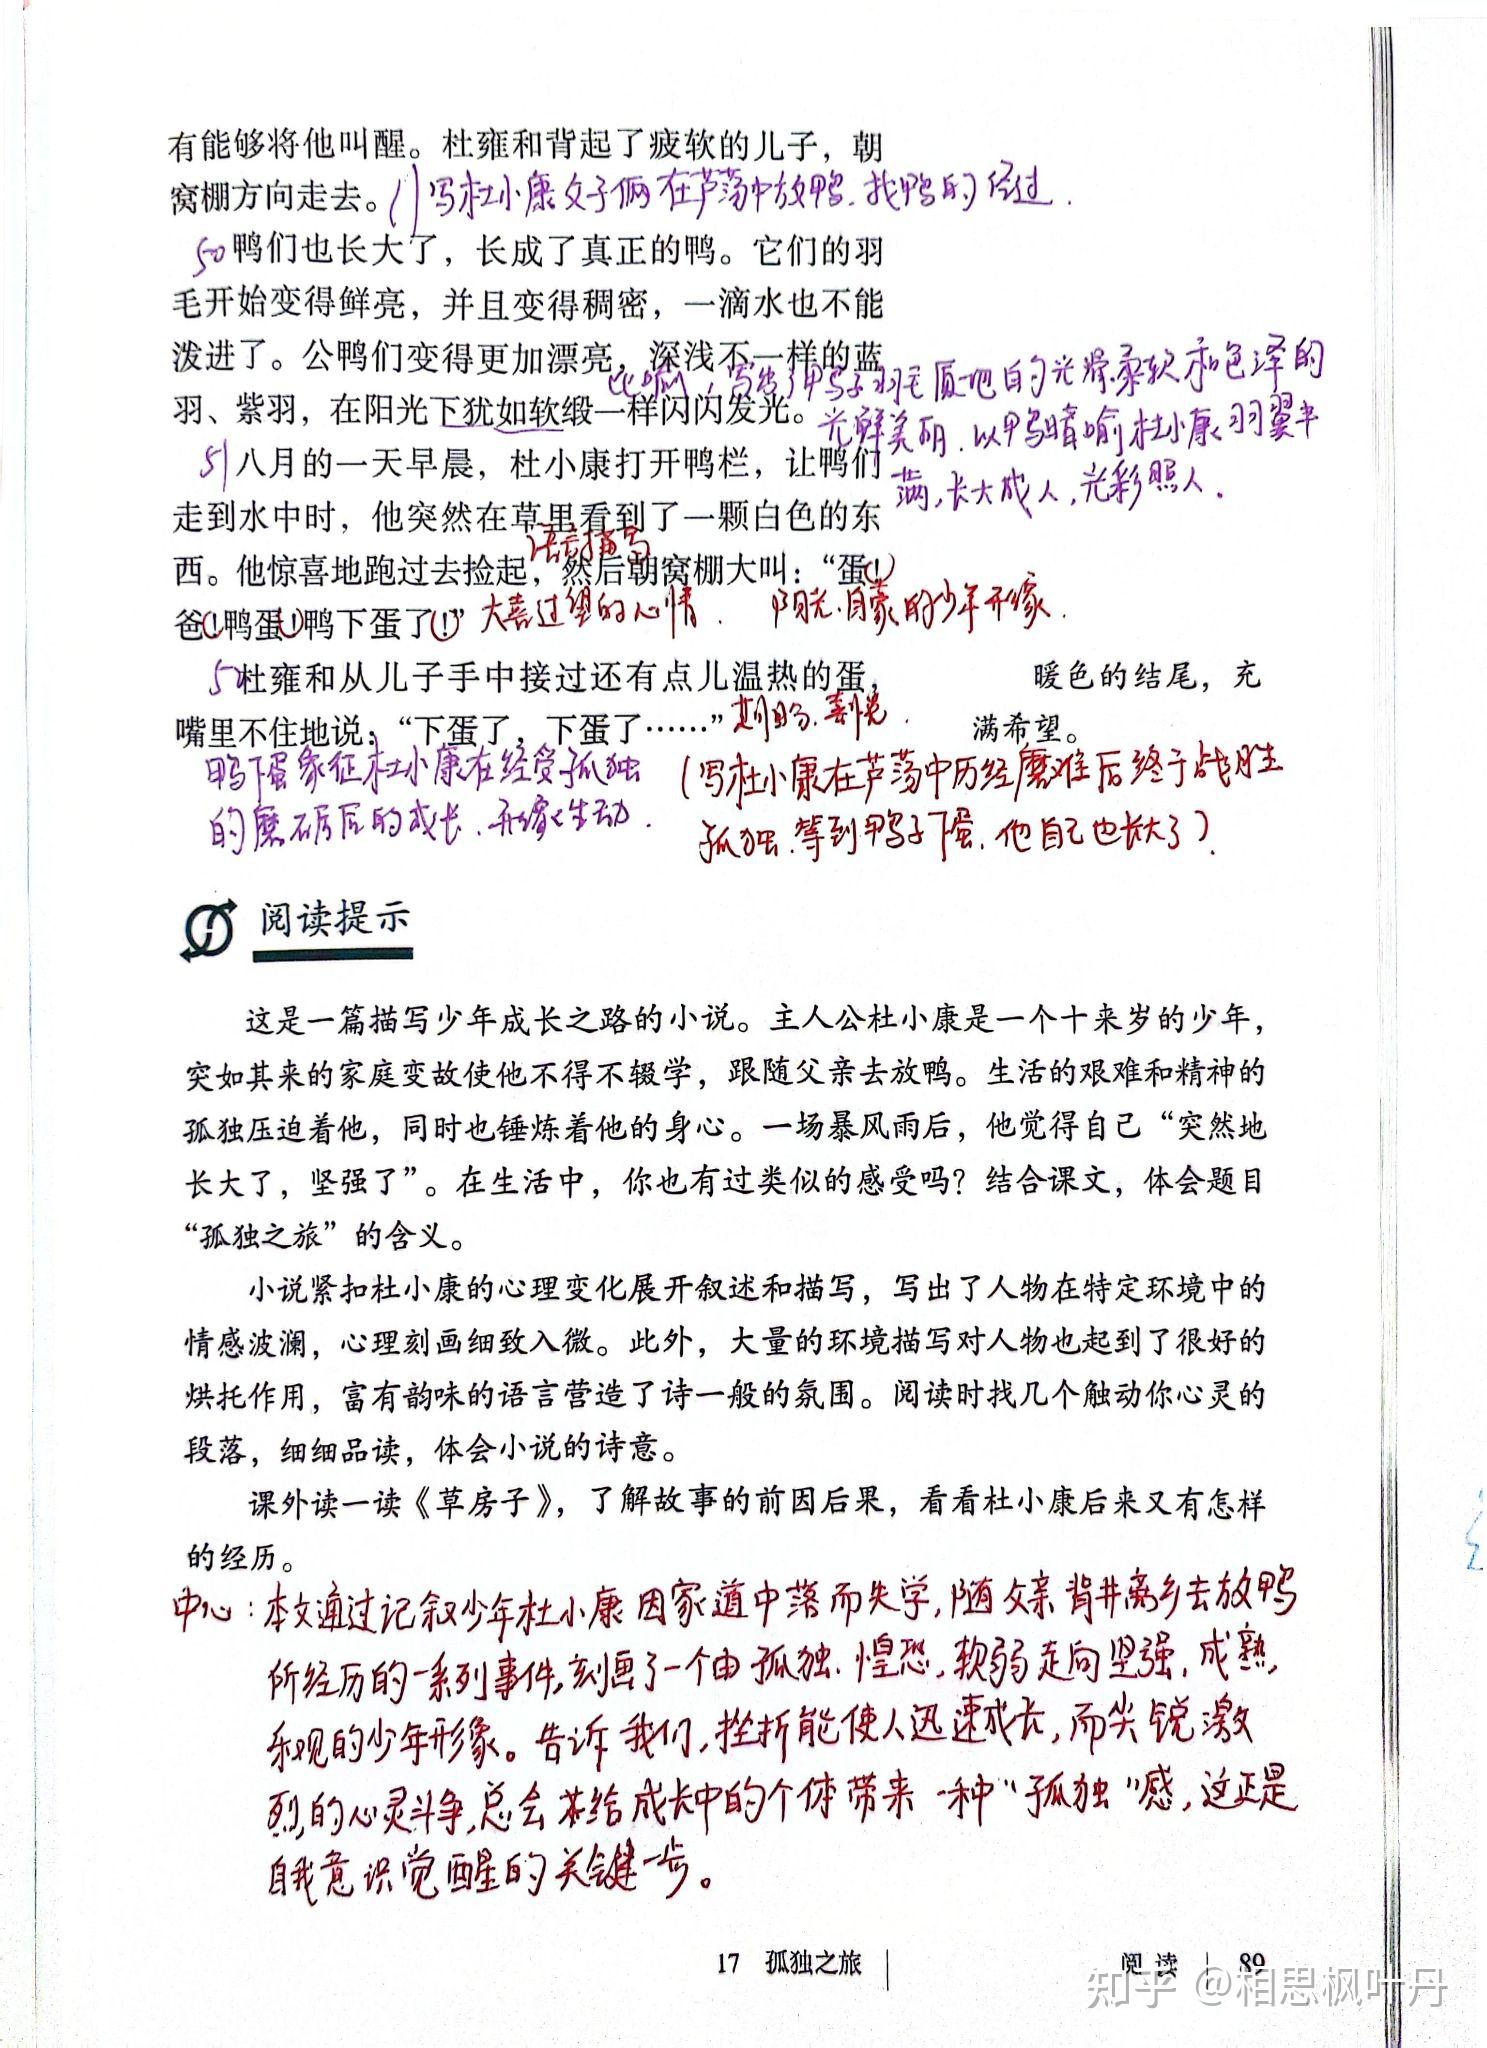 有能够将他叫醒。杜雍和背起了疲软的儿子，朝
窝棚方向走去。()写杜小康父子俩在芦荡中放鸭、找鸭的经过.
50鸭们也长大了，长成了真正的鸭。它们的羽
毛开始变得鲜亮，并且变得稠密，一滴水也不能
泼进了。公鸭们变得更加漂亮，深浅不一样的蓝
比喻，写出了鸭子羽毛质地的光滑柔软和色泽的
羽、紫羽，在阳光下犹如软缎一样闪闪发光。
光鲜美丽.以鸭暗喻杜小康羽翼丰
51八月的一天早晨，杜小康打开鸭栏，让鸭们
满,长大成人,光彩照人.
走到水中时，他突然在草里看到了一颗白色的东
语言描写
西。他惊喜地跑过去捡起，然后朝窝棚大叫：“蛋！
爸！鸭蛋！鸭下蛋了！”大喜过望的心情. 阳光、自豪的少年形象.
5杜雍和从儿子手中接过还有点儿温热的蛋，
暖色的结尾，充
嘴里不住地说：“下蛋了，下蛋了……”激动、喜悦.
满希望。
鸭下蛋象征杜小康在经受孤独
的磨砺后的成长.形象生动.
(写杜小康在芦荡中历经磨难后终于战胜
孤独.等到鸭子下蛋.他自己也长大了).
阅读提示
这是一篇描写少年成长之路的小说。主人公杜小康是一个十来岁的少年，
突如其来的家庭变故使他不得不辍学，跟随父亲去放鸭。生活的艰难和精神的
孤独压迫着他，同时也锤炼着他的身心。一场暴风雨后，他觉得自己“突然地
长大了，坚强了”。在生活中，你也有过类似的感受吗？结合课文，体会题目
“孤独之旅”的含义。
小说紧扣杜小康的心理变化展开叙述和描写，写出了人物在特定环境中的
情感波澜，心理刻画细致入微。此外，大量的环境描写对人物也起到了很好的
烘托作用，富有韵味的语言营造了诗一般的氛围。阅读时找几个触动你心灵的
段落，细细品读，体会小说的诗意。
课外读一读《草房子》，了解故事的前因后果，看看杜小康后来又有怎样
的经历。
中心:本文通过记叙少年杜小康因家道中落而失学,随父亲背井离乡去放鸭
所经历的一系列事件,刻画了一个由孤独、惶恐,软弱走向坚强,成熟,
乐观的少年形象。告诉我们,挫折能使人迅速成长,而尖锐激
烈的心灵斗争,总会给成长中的个体带来一种“孤独”感,这正是
自我意识觉醒的关键一步。
17 孤独之旅
阅读 89
知乎 @相思枫叶丹